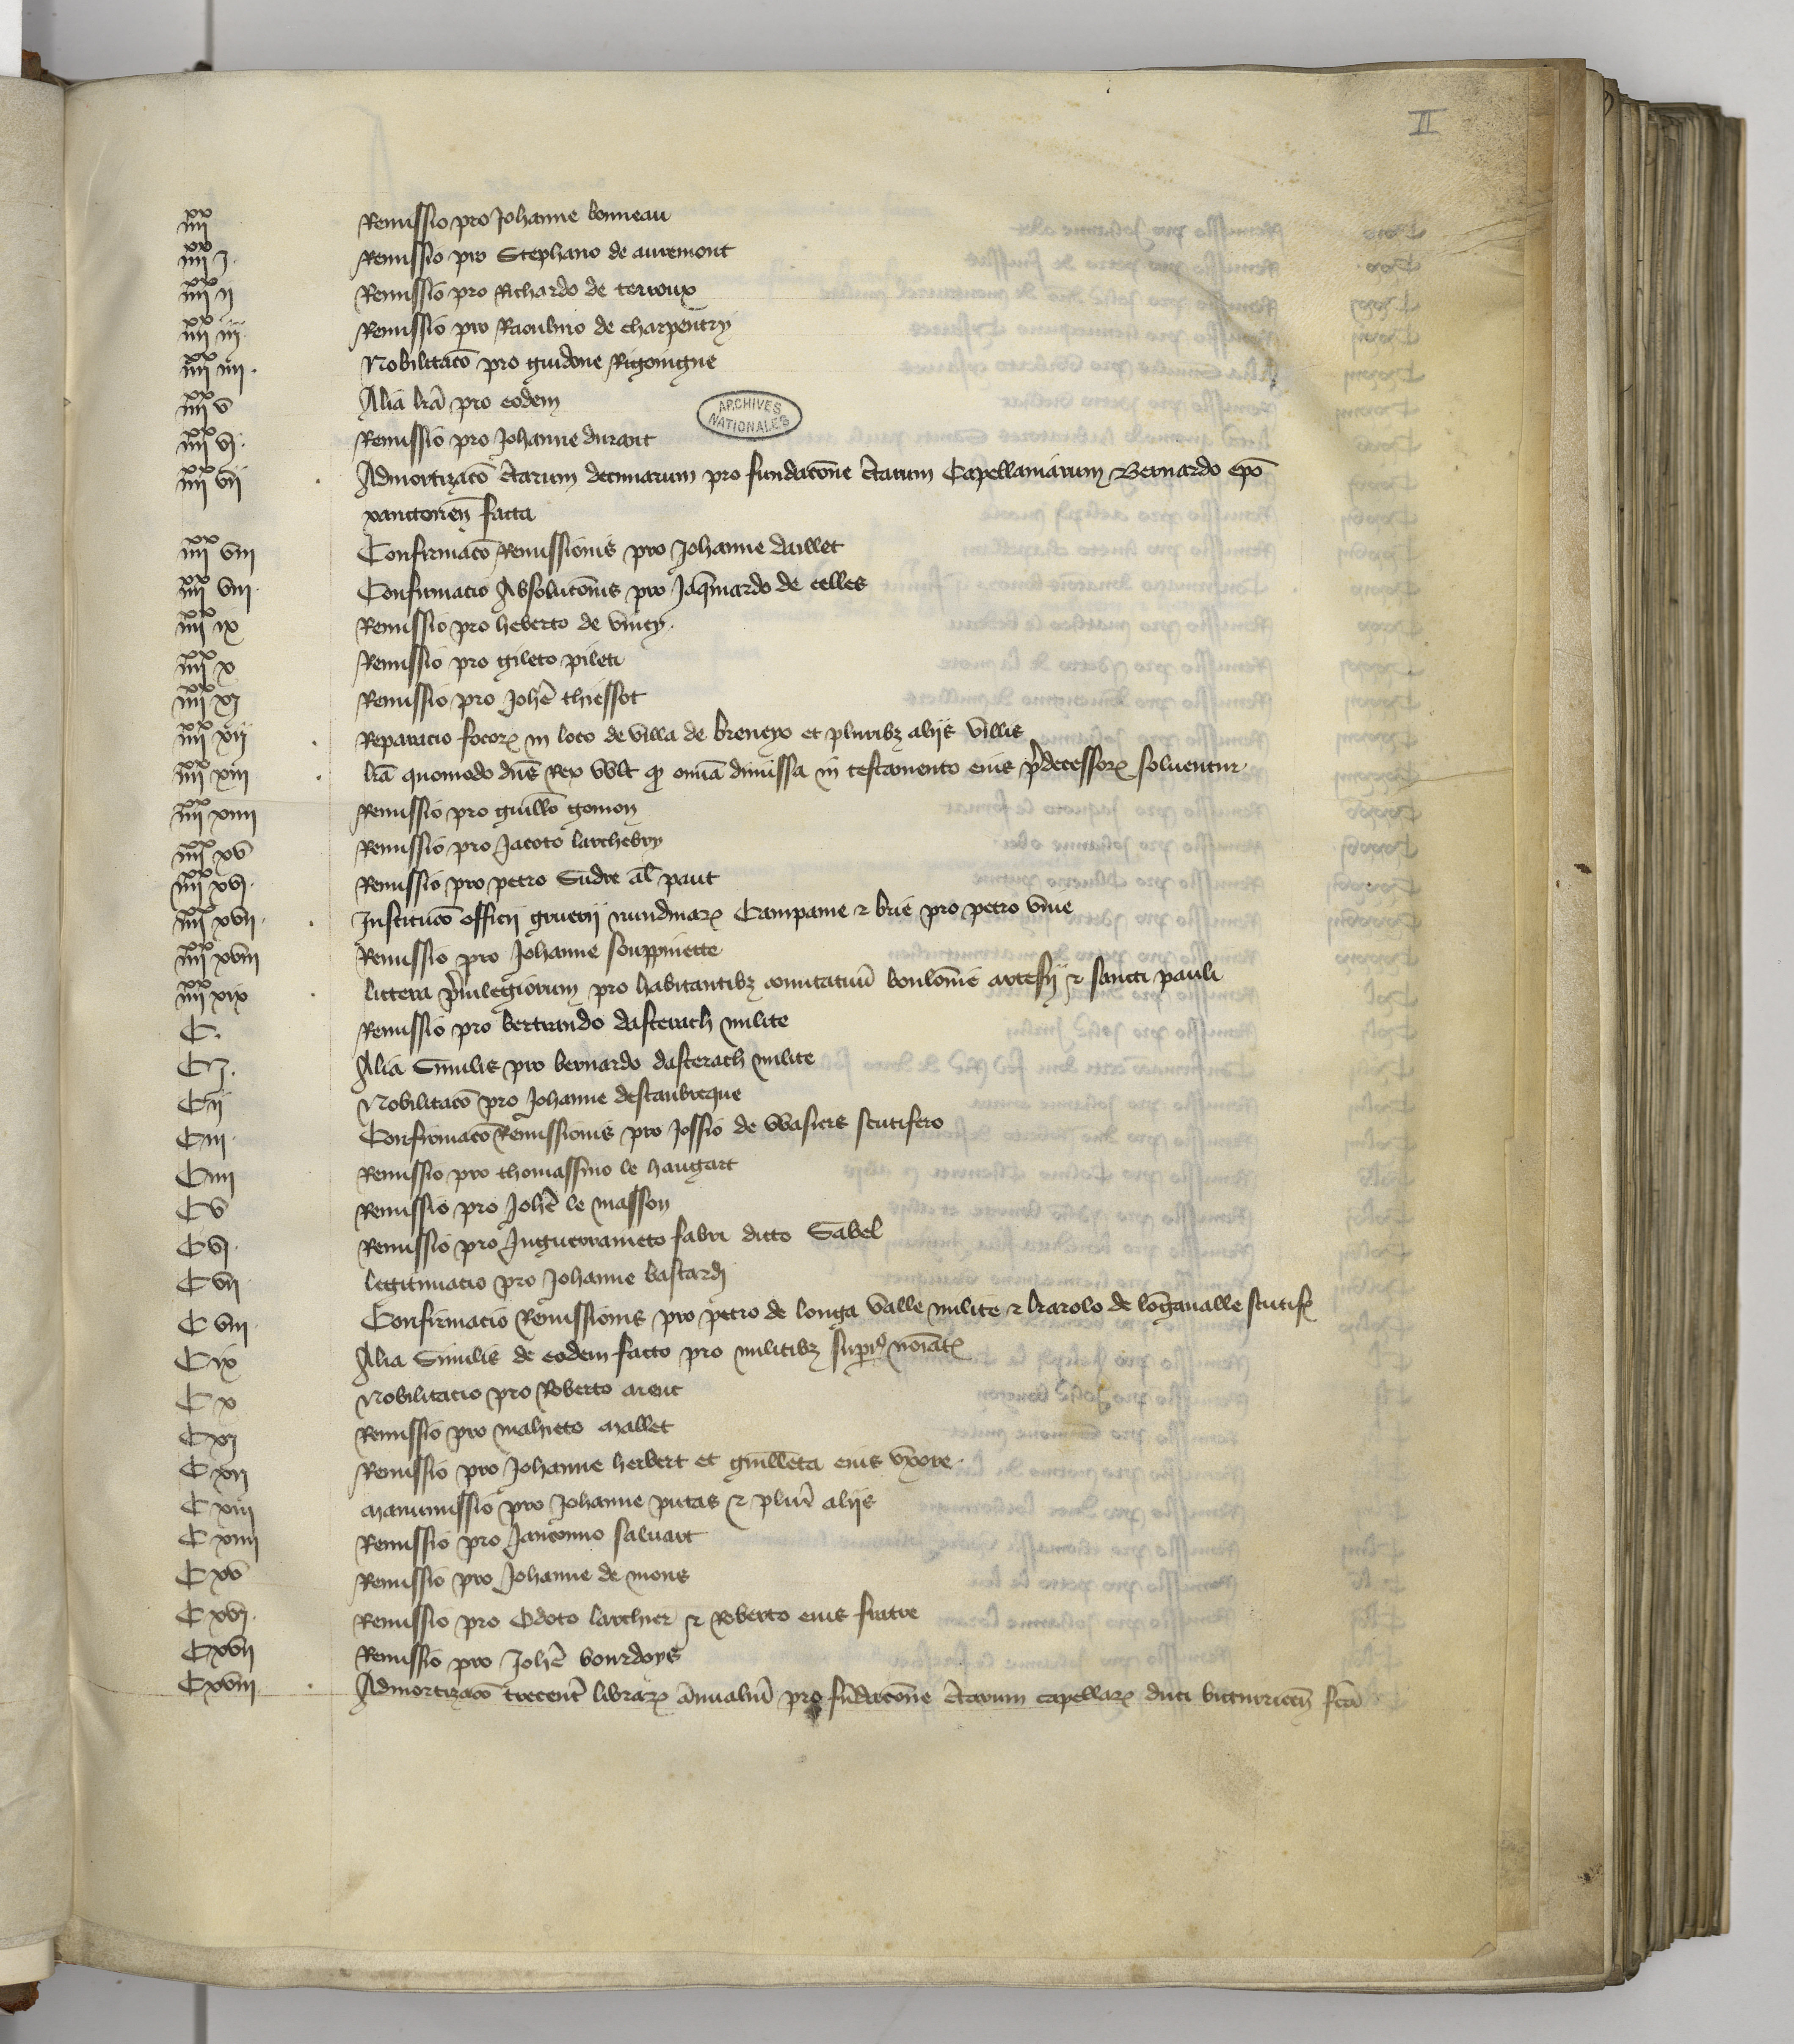 II
iiii^xx Remissio pro Johanne bonneau
iiii^xx j. Remissio pro Stephano de auremont
iiii^xx ij Remissio pro Richardo de terroux
iiii^xx iij. Remissio pro Raoulino de charpentry
iiii^xx iiij. Nobilitacō pro guidone Rigonigne
iiii^xx v Alia lr̄a pro eodem
ARCHIVES NATIONALES
iiii^xx vj. Remissio pro Johanne durant
iiii^xx vij Admortizacō c̄tarum decimarum pro fundacōne c̄tarum Capellaniarum Bernardo ep̄o
xanctonen̄ facta
iiii^xx viii Confirmacō Remissionis pro Johanne daillet
iiii^xx viii. Confirmacio Absolucōnis pro Jaq̄mardo de celles
iiii^xx ix Remissio pro heberto de vnicy.
iiii^xx x Remissio pro gileto pileti
iiii^xx xj Remissio pro Joh̄e thiessot
iiii^xx xij Reparacio focorꝝ in loco de villa de breneyo et pluribꝫ aliis villis
iiii^xx xiij lr̄a quomodo dn̄s Rex vult ꝙ om̄ia dimissa in testamento eius p̄decessorꝝ soluentur.
iiii^xx xiiij Remissio pro guill̄o gomon
iiii^xx xv Remissio pro Jacoto larchebry
iiii^xx xvj. Remissio pro petro Sudre al̄ paut
iiii^xx xvij. Institucō officij gruerij nundinarꝝ Campanie ⁊ brie pro petro vnie
iiii^xx xviij Remissio pro Johanne souppinette
iiii^xx xix littera p̄uilegiorum pro habitantibꝫ comitatuū boulon̄ie artesij ⁊ sancti pauli
C. Remissio pro bertrando dasterach milite
Cj. Alia Similis pro bernardo dasterach milite
Cij Nobilitacō pro Johanne destaubreque
Ciij. Confirmacō Remissionis pro Jossio de Wasiers scutifero
Ciiij Remissio pro thomassino le haugart
Cv Remissio pro Joh̄e le masson
Cvj. Remissio pro Inguerrameto fabri dicto Sabel
Cvij legitimacio pro Johanne bastardj
Cviij. Confirmacio Remissionis pro petro de longa valle milite ⁊ karolo de lōgaualle scutif̄
Cix Alia Similis de eodem facto pro militibꝫ supi^9 noīat̄
Cx Nobilitacio pro Roberto arent
Cxj Remissio pro mahieto mallet
Cxij Remissio pro Johanne herbert et guill̄eta eius vxore.
Cxiij Manumissio pro Johanne putas ⁊ plur̄ aliis
Cxiiij Remissio pro Janconno saluart
Cxv Remissio pro Johanne de mons
Cxvj. Remissio pro Odoto larchier ⁊ Roberto eius fratre
Cxvij Remissio pro Joh̄e bourdoys
Cxviij Admortizacō trecent̄ librarꝝ ānualiū pro fūdacōne c̄tarum capellarꝝ duci bituricen̄ fc̄a